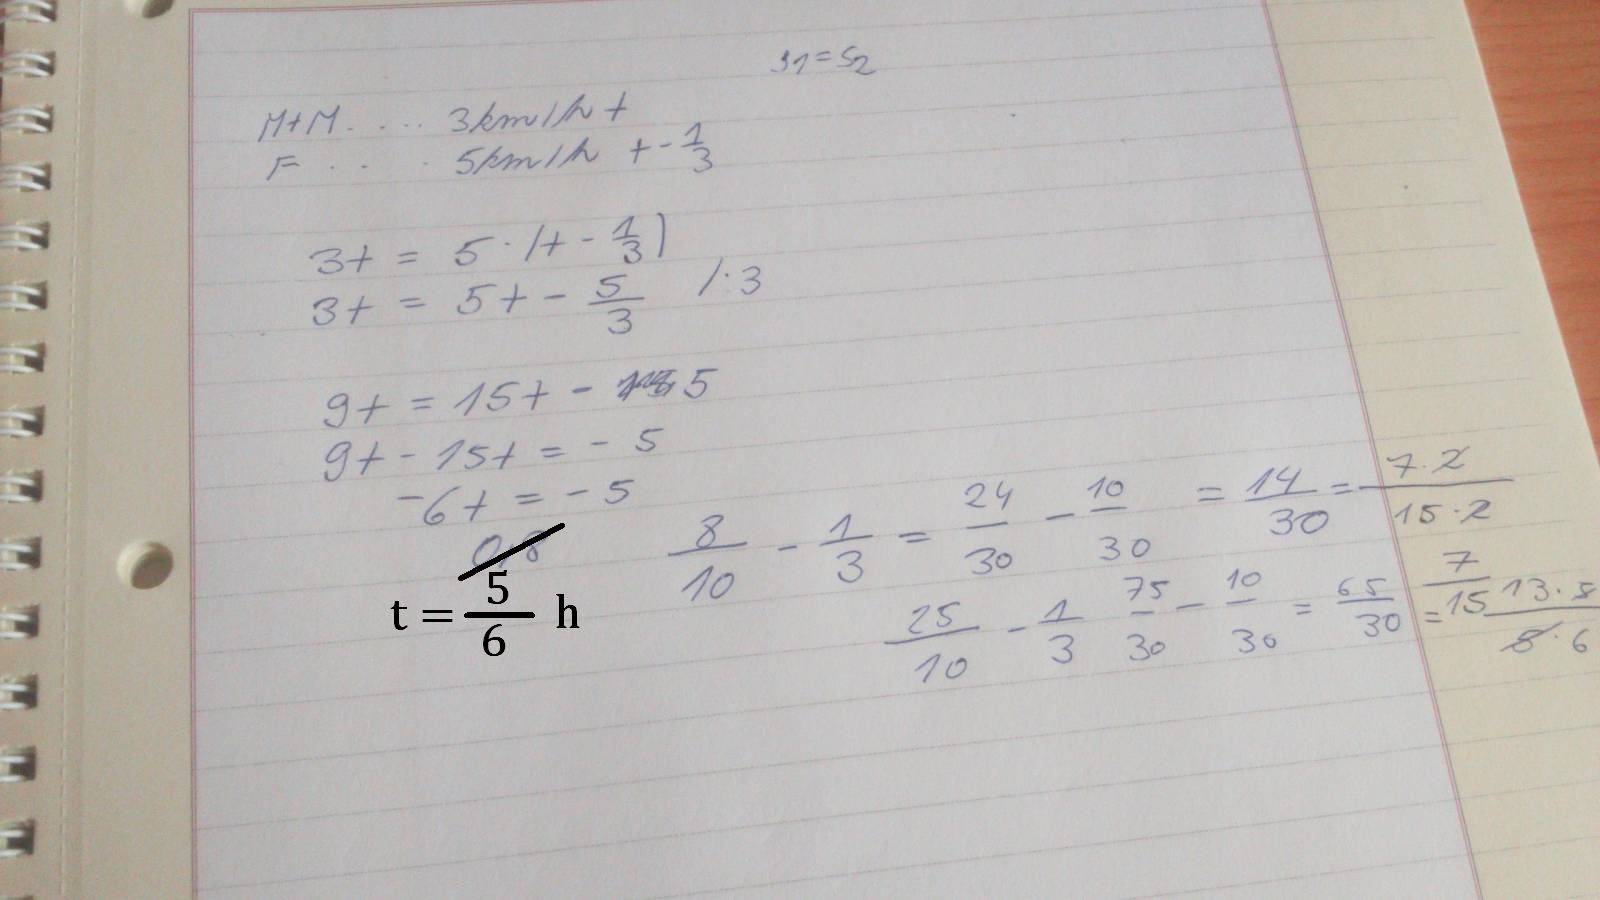 s1 = s2
M+M . . . . 3km/h t
F . . . 5km/h t - 1/3
3t = 5 · (t - 1/3)
3t = 5t - 5/3 / · 3
9t = 15t - 5
9t - 15t = - 5
-6t = - 5
0,8
t = 5/6 h
8/10 - 1/3 = 24/30 - 10/30 = 14/30 = 7·2/15·2
7/15
25/10 - 1/3 75/30 - 10/30 = 65/30 = 13·5/5·6